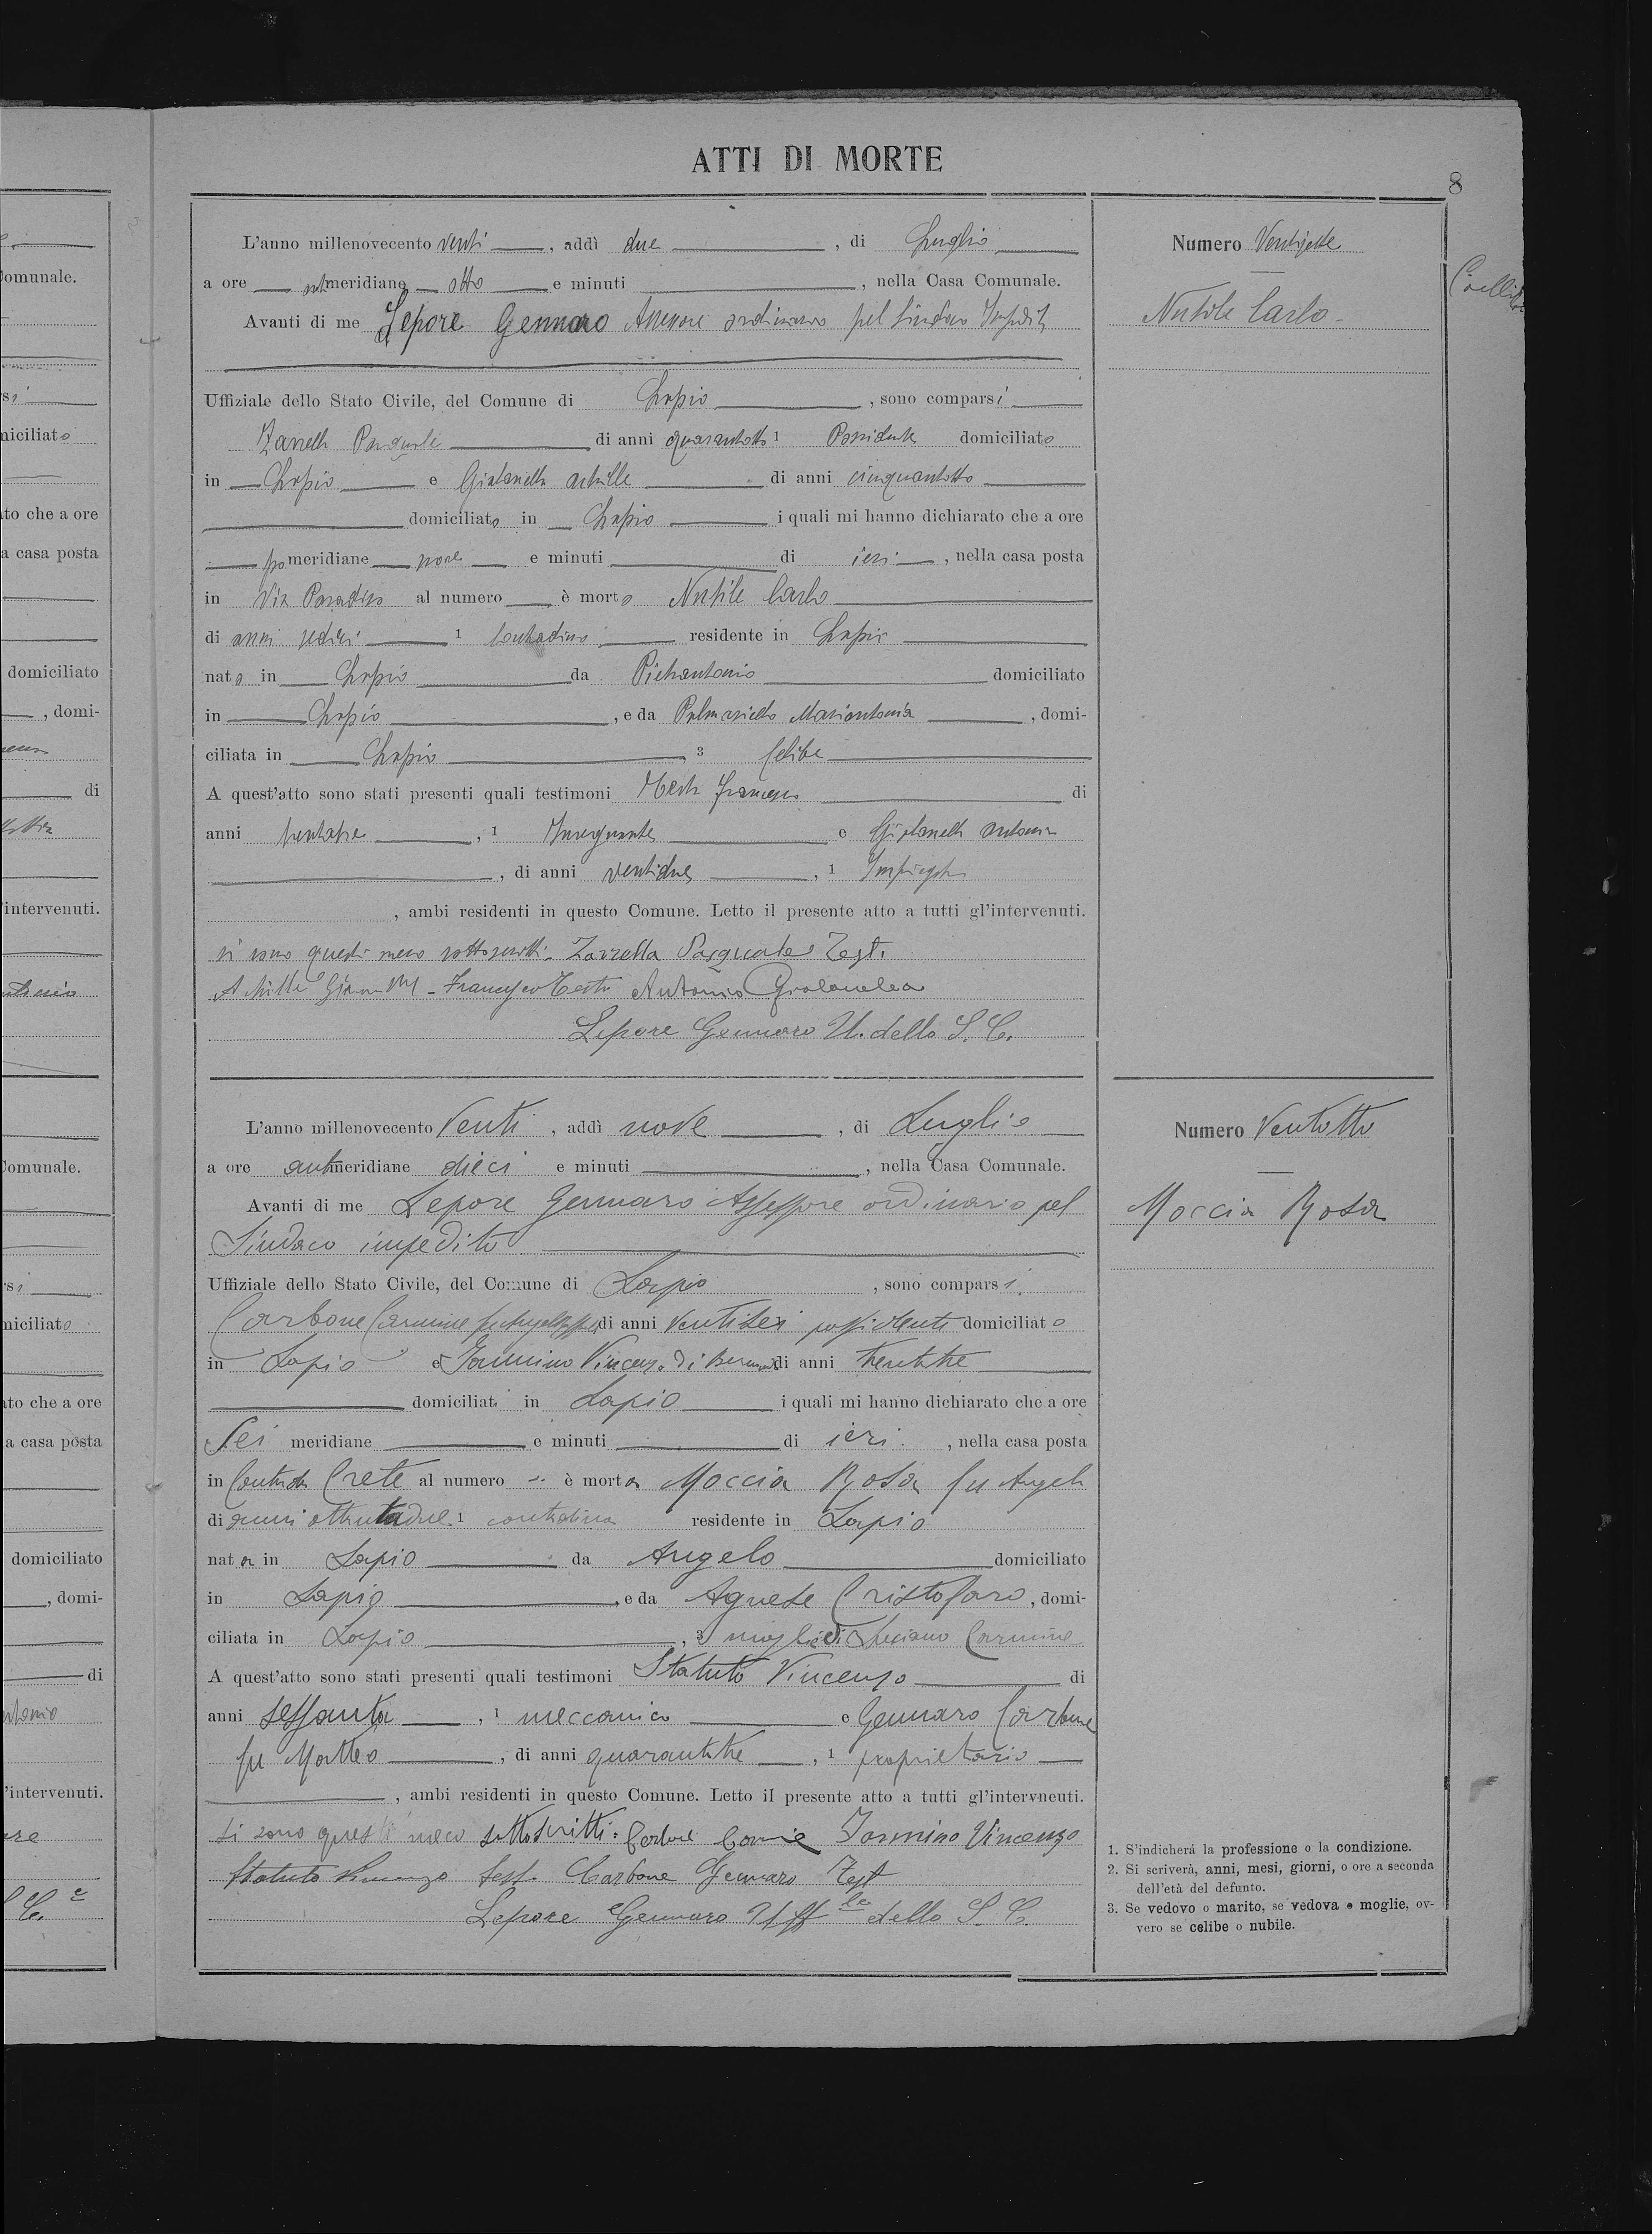 ATTI DI MORTE
8
L'anno millenovecento venti, addì due, di Luglio
a ore antimeridiane otto e minuti, nella Casa Comunale.
Avanti di me Lepore Gennaro Assessore ordinario pel Sindaco
Uffiziale dello Stato Civile, del Comune di Lapio, sono comparsi
Zarrella Pasquale di anni quarantotto 1 Possidente domiciliato
in Lapio e Gialanella Achille di anni cinquantotto
domiciliato in Lapio i quali mi hanno dichiarato che a ore
pomeridiane nove e minuti di ieri, nella casa posta
in Via Paradiso al numero è morto Nutile Carlo
di anni sedici 1 contadino residente in Lapio
nato in Lapio da Pietrantonio domiciliato
in Lapio, e da Palmariello Mariantonia, domi-
ciliata in Lapio 3 Celibe
A quest'atto sono stati presenti quali testimoni Testa Francesco di
anni trentatre, 1 Insegnante e Gialanella Antonio
, di anni ventidue, 1 Impiegato
, ambi residenti in questo Comune. Letto il presente atto a tutti gl'intervenuti.
si sono questi meco sottoscritti. Zarrella Pasquale Test.
Achille Francesco Testa Antonio Gialanella
Lepore Gennaro U. dello S. C.
Numero Ventisette
Nutile Carlo
L'anno millenovecento Venti, addì nove, di Luglio
a ore antimeridiane dieci e minuti, nella Casa Comunale.
Avanti di me Lepore Gennaro Assessore ordinario pel
Sindaco impedito
Uffiziale dello Stato Civile, del Comune di Lapio, sono comparsi
Carbone Carmine di anni ventisei possidente domiciliato
in Lapio e Iannino Vincenzo di anni trentatre
domiciliati in Lapio i quali mi hanno dichiarato che a ore
Sei meridiane e minuti di ieri, nella casa posta
in Contrada Crete al numero è morta Moccia Rosa fu Angelo
di anni ottantadue 1 contadina residente in Lapio
nata in Lapio da Angelo domiciliato
in Lapio, e da Agnese Cristofaro, domi-
ciliata in Lapio, 3 moglie di Carmine
A quest'atto sono stati presenti quali testimoni Statuto Vincenzo di
anni sessanta, 1 meccanico e Gennaro Carbone
fu Matteo, di anni quarantatre, 1 proprietario
, ambi residenti in questo Comune. Letto il presente atto a tutti gl'intervneuti.
si sono questi meco sottoscritti: Carbone Iannino Vincenzo
Statuto Vincenzo test. Carbone Gennaro Test
Lepore Gennaro Uff le dello S. C.
Numero Ventotto
Moccia Rosa
1. S'indicherá la professione o la condizione.
2. Si scriverà, anni, mesi, giorni, o ore a seconda
dell'età del defunto.
3. Se vedovo o marito, se vedova e moglie, ov-
vero se celibe o nubile.